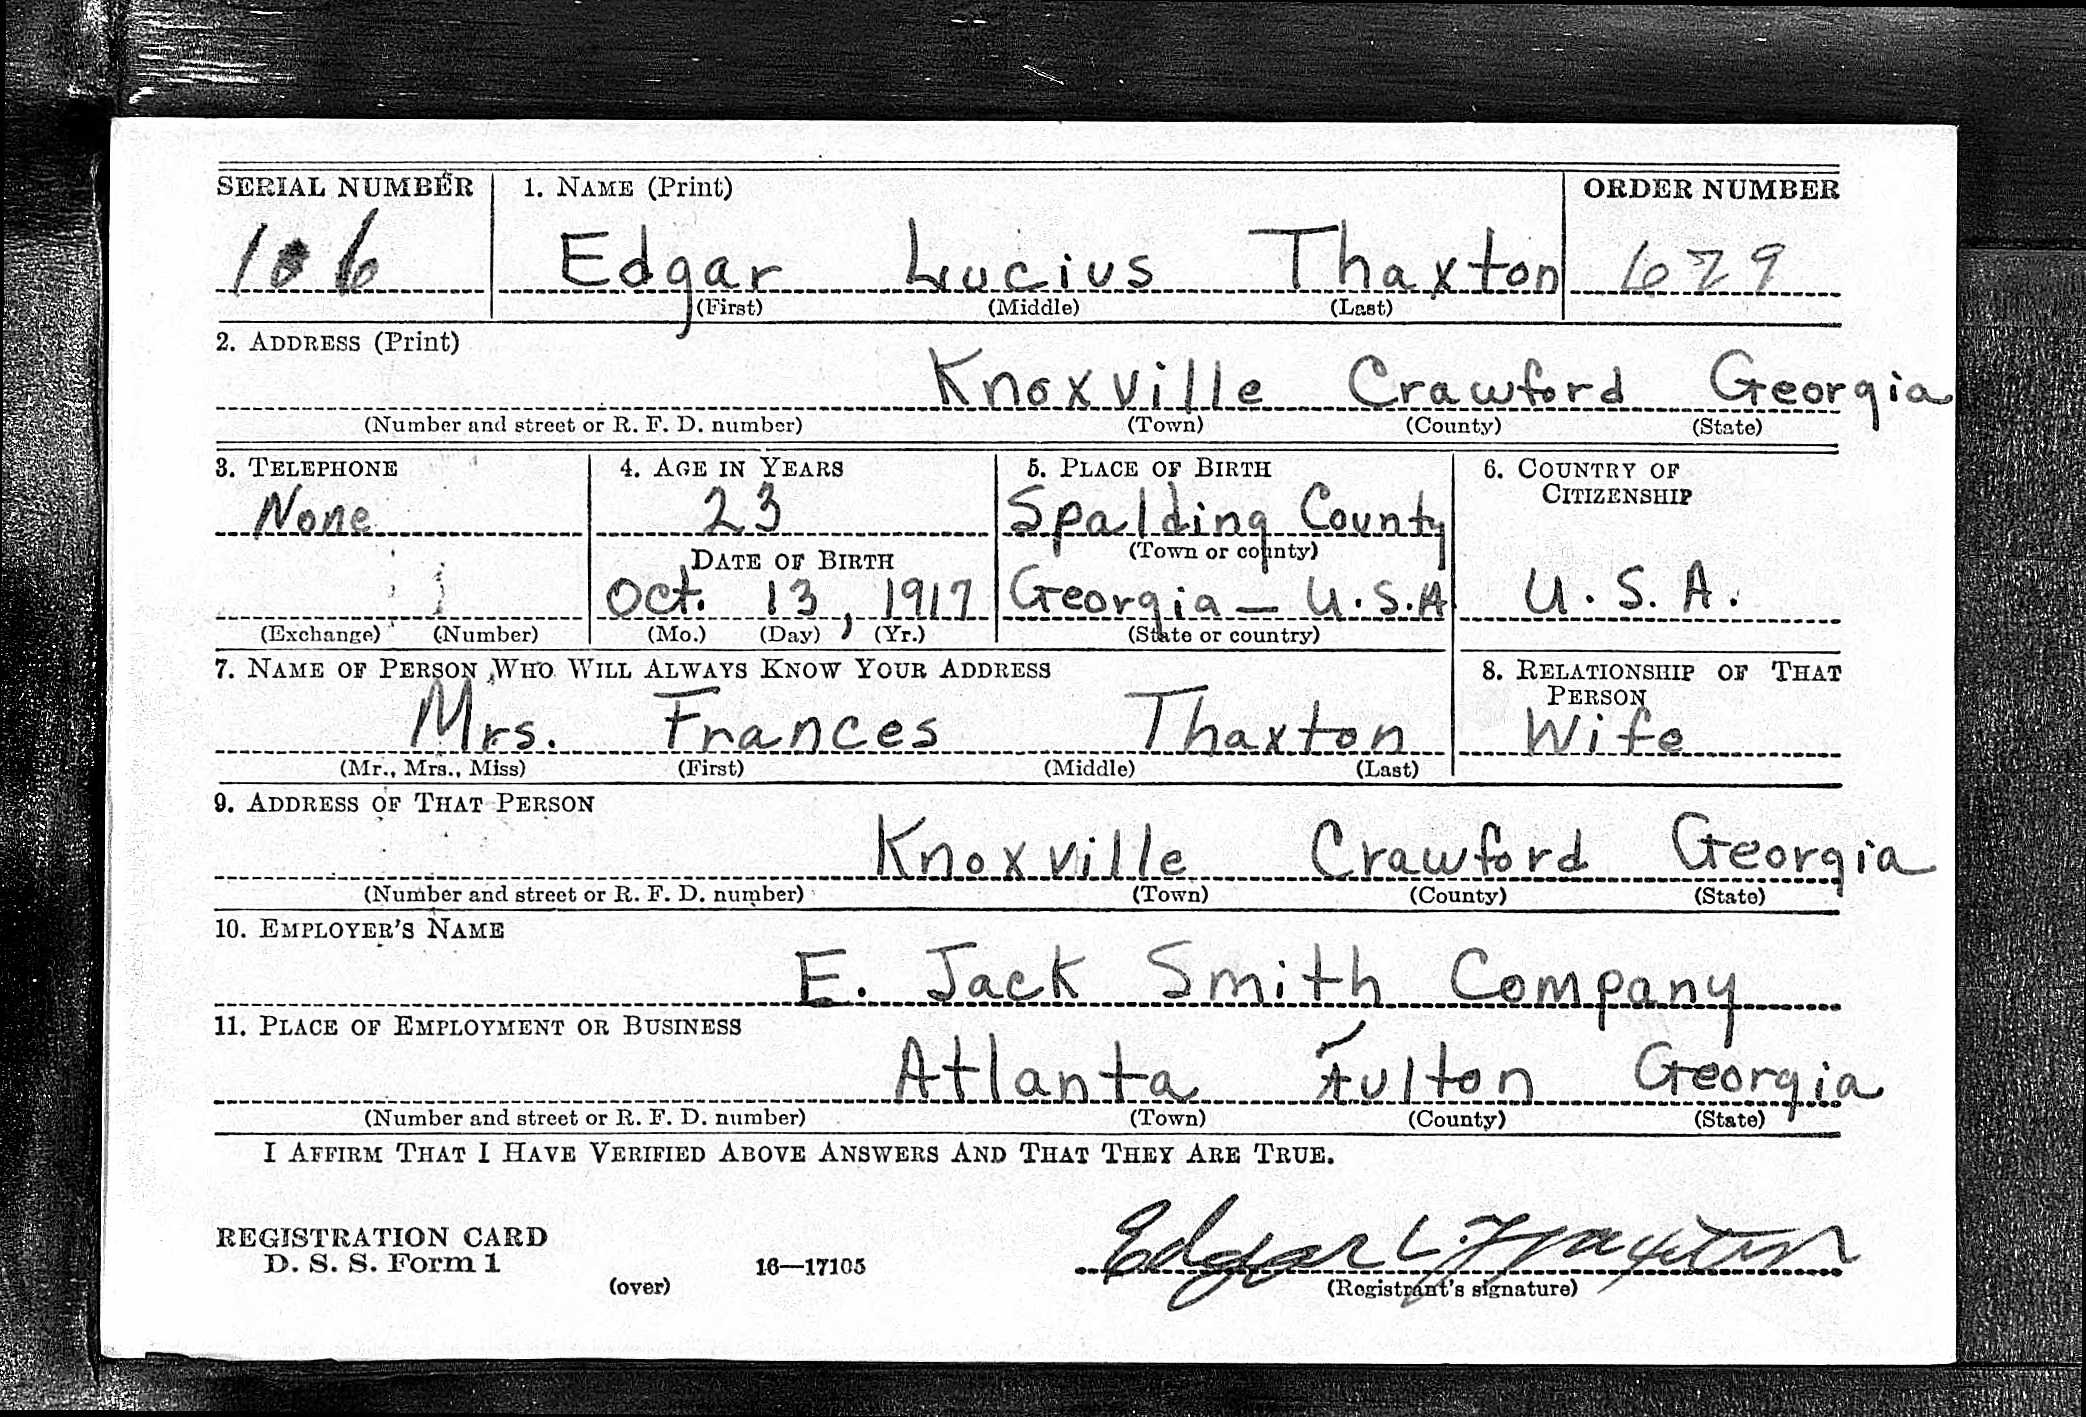 SERIAL NUMBER 1. NAME (Print) ORDER NUMBER
106 Edgar Lucius Thaxton 679
(First) (Middle) (Last)
2. ADDRESS (Print)
Knoxville Crawford Georgia
(Number and street or R. F. D. number) (Town) (County) (State)
3. TELEPHONE 4. AGE IN YEARS 5. PLACE OF BIRTH 6. COUNTRY OF CITIZENSHIP
None 23 Spalding County
DATE OF BIRTH (Town or county)
Oct. 13, 1917 Georgia – U.S.A U.S.A.
(Exchange) (Number) (Mo.) (Day) (Yr.) (State or country)
7. NAME OF PERSON WHO WILL ALWAYS KNOW YOUR ADDRESS 8. RELATIONSHIP OF THAT PERSON
Mrs. Frances Thaxton Wife
(Mr., Mrs., Miss) (First) (Middle) (Last)
9. ADDRESS OF THAT PERSON
Knoxville Crawford Georgia
(Number and street or R. F. D. number) (Town) (County) (State)
10. EMPLOYER'S NAME
E. Jack Smith Company
11. PLACE OF EMPLOYMENT OR BUSINESS
Atlanta Fulton Georgia
(Number and street or R. F. D. number) (Town) (County) (State)
I AFFIRM THAT I HAVE VERIFIED ABOVE ANSWERS AND THAT THEY ARE TRUE.
REGISTRATION CARD
D. S. S. Form 1 16—17105 Edgar L. Thaxton
(over) (Registrant's signature)